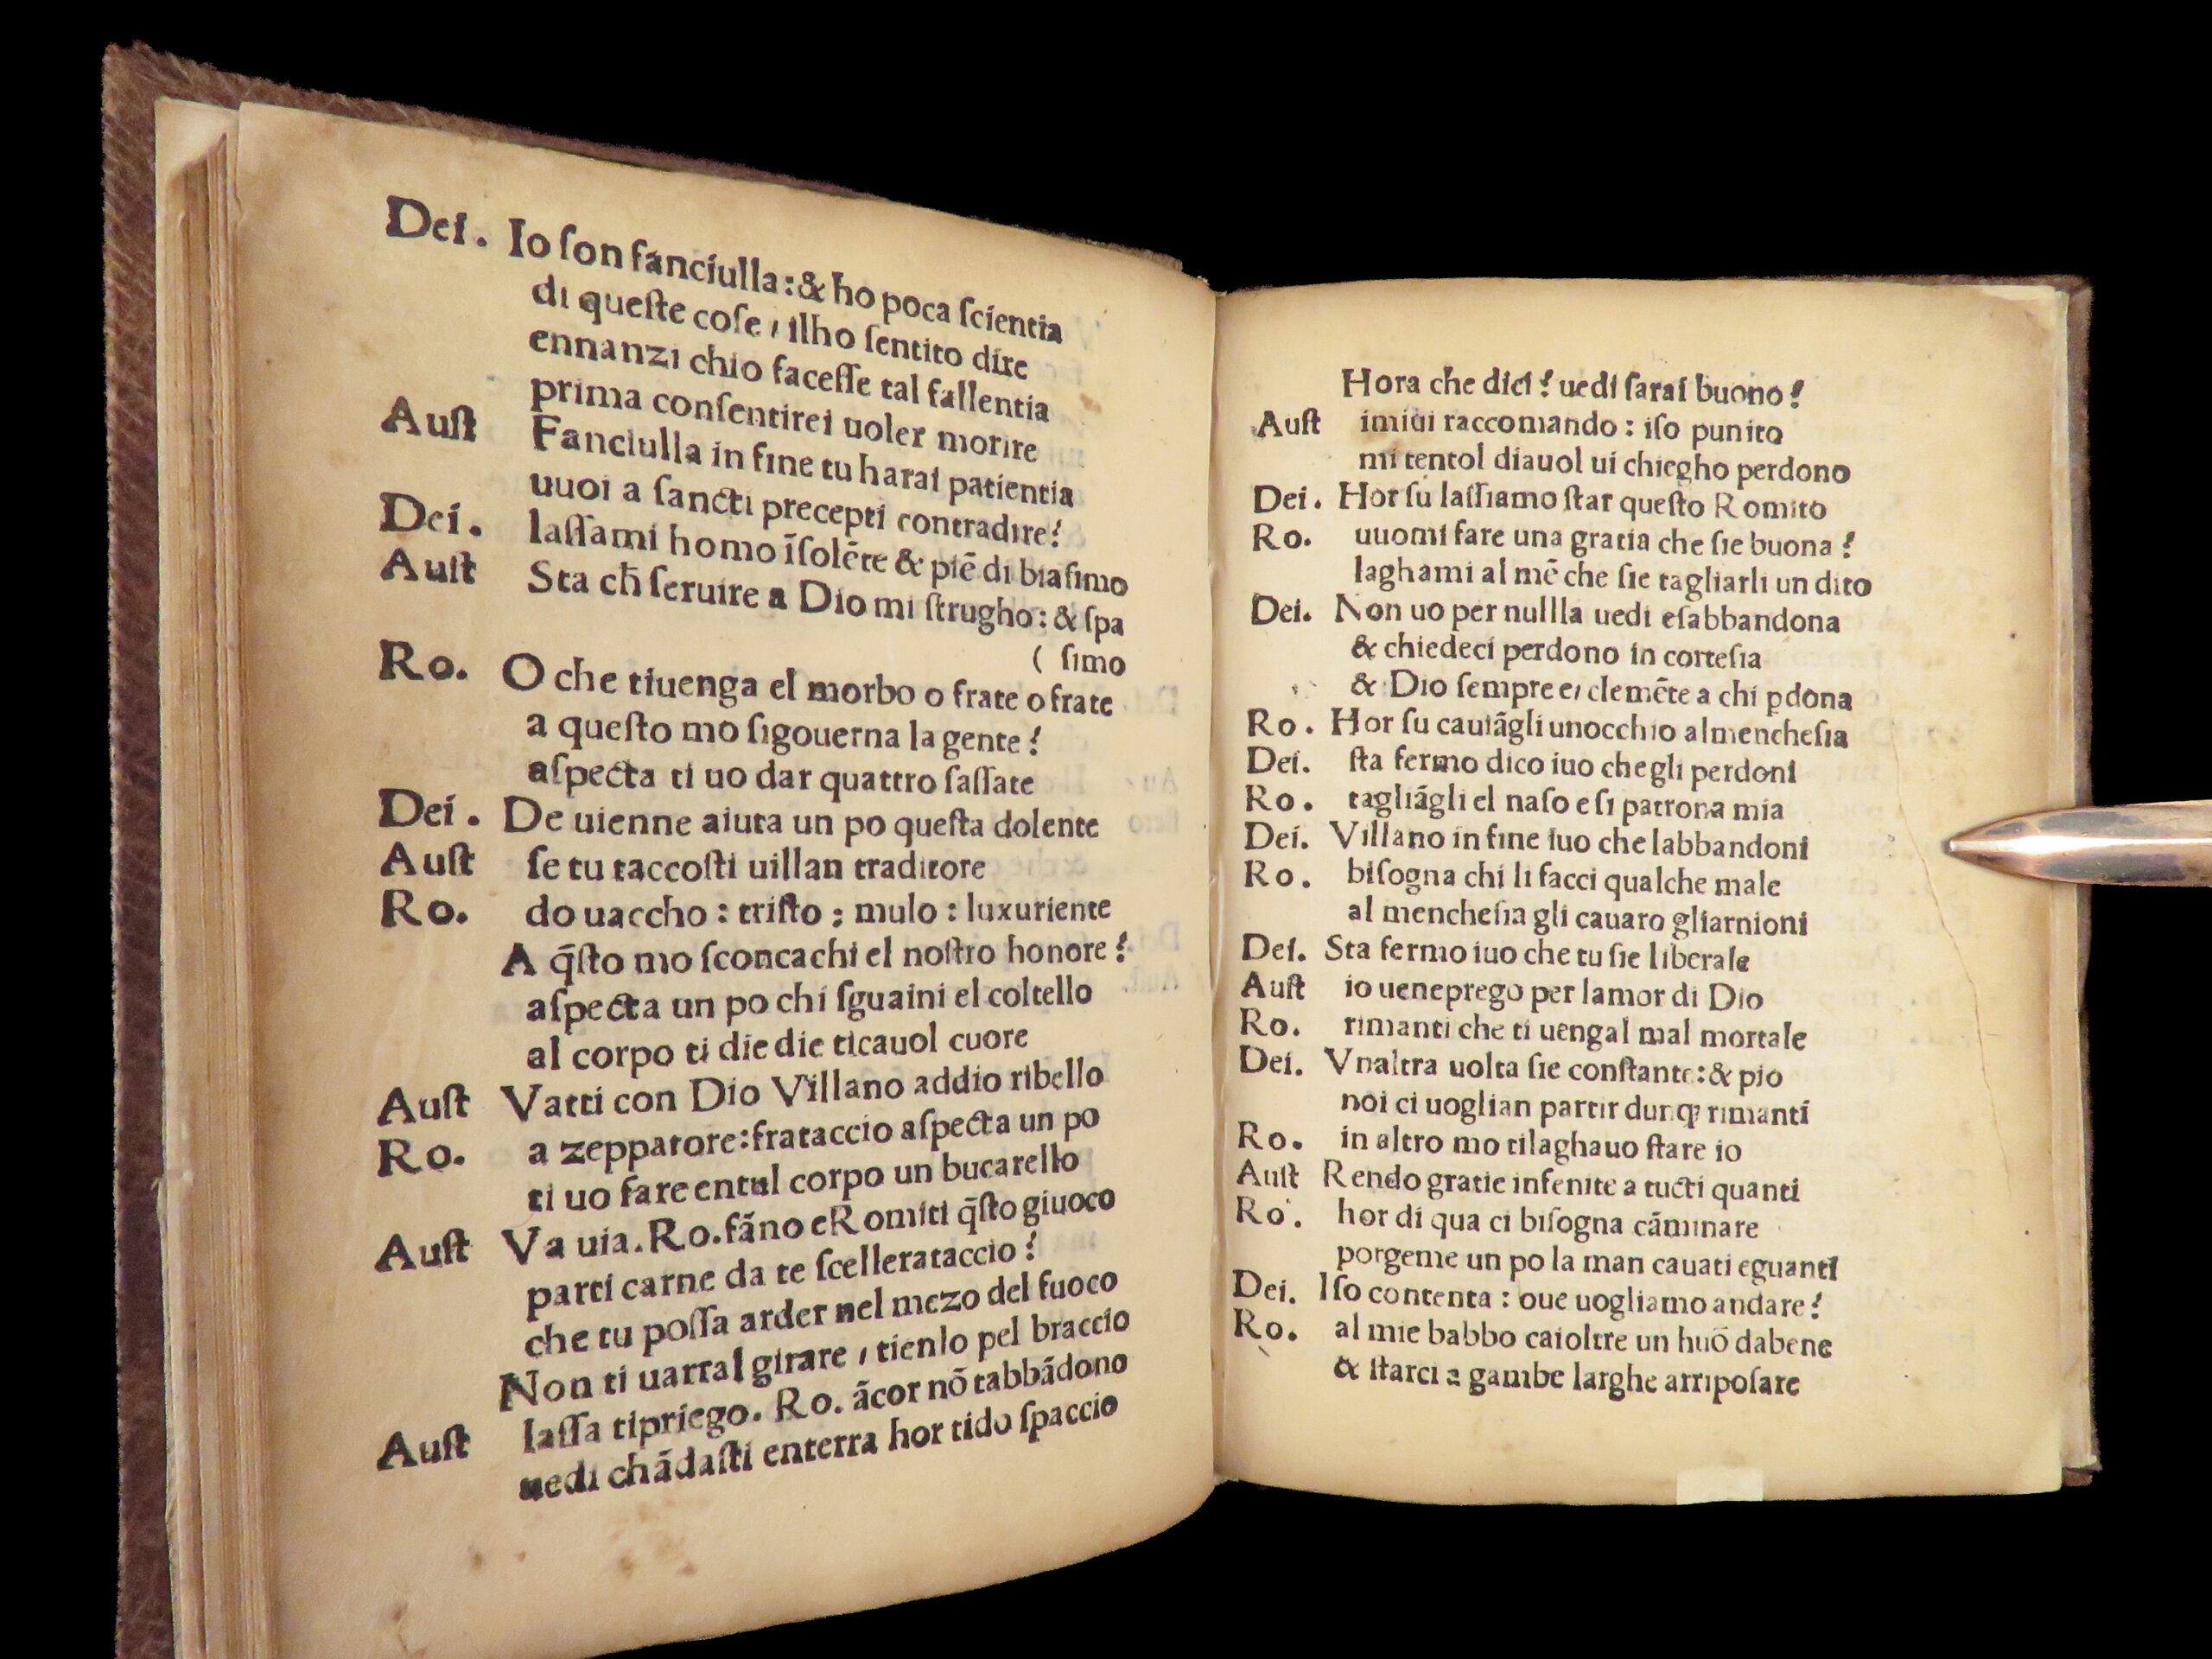 Dei. Io ſon fanciulla:& ho poca ſcientia
di queſte coſe, ilho ſentito dire
ennanzi chio faceſſe tal fallentia
prima conſentirei uoler morire
Auſt Fanciulla in fine tu harai patientia
uuoi a ſancti precepti contradire?
Dei. laſſami homo īſolēte & piē di biaſimo
Auſt Sta ch̄ ſeruire a Dio mi ſtrugho: & ſpa
( ſimo
Ro. O che tiuenga el morbo o frate o frate
a queſto mo ſigouerna la gente?
aſpecta ti uo dar quattro ſaſſate
Dei. De uienne aiuta un po queſta dolente
Auſt ſe tu taccoſti uillan traditore
Ro. do uaccho : triſto ; mulo : luxuriente
A q̄ſto mo ſconcachi el noſtro honore?
aſpecta un po chi ſguaini el coltello
al corpo ti die die ticauol cuore
Auſt Vatti con Dio Villano addio ribello
Ro. a zeppatore:frataccio aſpecta un po
ti uo fare entul corpo un bucarello
Auſt Va uia. Ro. fāno eRomiti q̄ſto giuoco
parti carne da te ſcellerataccio?
che tu poſſa arder nel mezo del fuoco
Non ti uarral girare, tienlo pel braccio
Auſt laſſa tipriego. Ro. ācor nō tabbādono
uedi chādaſti enterra hor tido ſpaccio
Hora che dici? uedi ſarai buono?
Auſt imiui raccomando : iſo punito
mi tentol diauol ui chiegho perdono
Dei. Hor ſu laſſiamo ſtar queſto Romito
Ro. uuomi fare una gratia che ſie buona?
laghami al mē che ſie tagliarli un dito
Dei. Non uo per nullla uedi eſabbandona
& chiedeci perdono in corteſia
& Dio ſempre e, clemēte a chi ꝑdona
Ro. Hor ſu cauiāgli unocchio almencheſia
Dei. ſta fermo dico iuo chegli perdoni
Ro. tagliāgli el naſo e ſi patrona mia
Dei. Villano in fine iuo che labbandoni
Ro. biſogna chi li facci qualche male
al mencheſia gli cauaro gliarnioni
Dei. Sta fermo iuo che tu ſie liberale
Auſt io ueneprego per lamor di Dio
Ro. rimanti che ti uengal mal mortale
Dei. Vnaltra uolta ſie conſtante:& pio
noi ci uoglian partir dunqꝫ rimanti
Ro. in altro mo tilaghauo ſtare io
Auſt Rendo gratie infenite a tucti quanti
Ro. hor di qua ci biſogna cāminare
porgeme un po la man cauati eguanti
Dei. Iſo contenta : oue uogliamo andare?
Ro. al mie babbo caioltre un huō dabene
& ſtarci a gambe larghe arripoſare